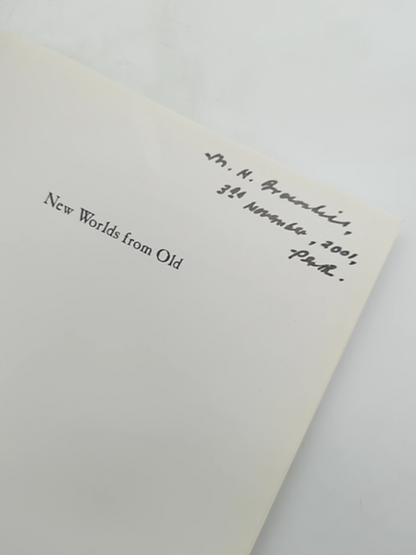 New Worlds from Old
M. H.
3rd November, 2001,
Perth.